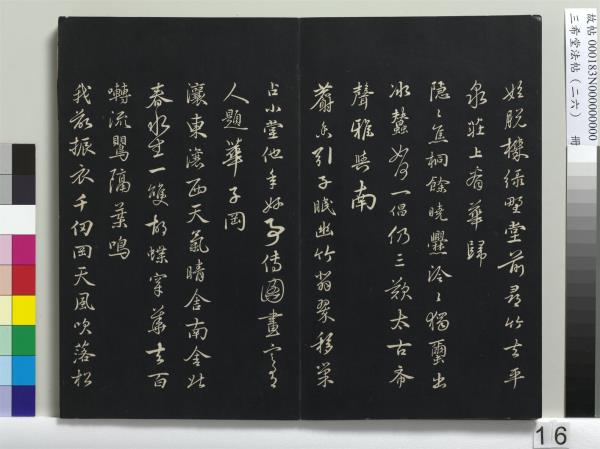 故帖 000183N000000000
三希堂法帖（二六） 冊
始脫襟綠野堂前尋竹去平
泉莊上看華歸
隱隱焦桐餘曉爨泠泠獨繭出
冰蠶如何一倡仍三歎太古齋
聲雅與南
蔚 引子 幽竹翁翠移巢
占小堂他年好事傳圖畫
人題華子岡
瀼東瀼西天氣晴舍南舍北
春水生一雙胡蝶穿華去百
囀流鶯隔葉鳴
我欲振衣千仞岡天風吹落松
16